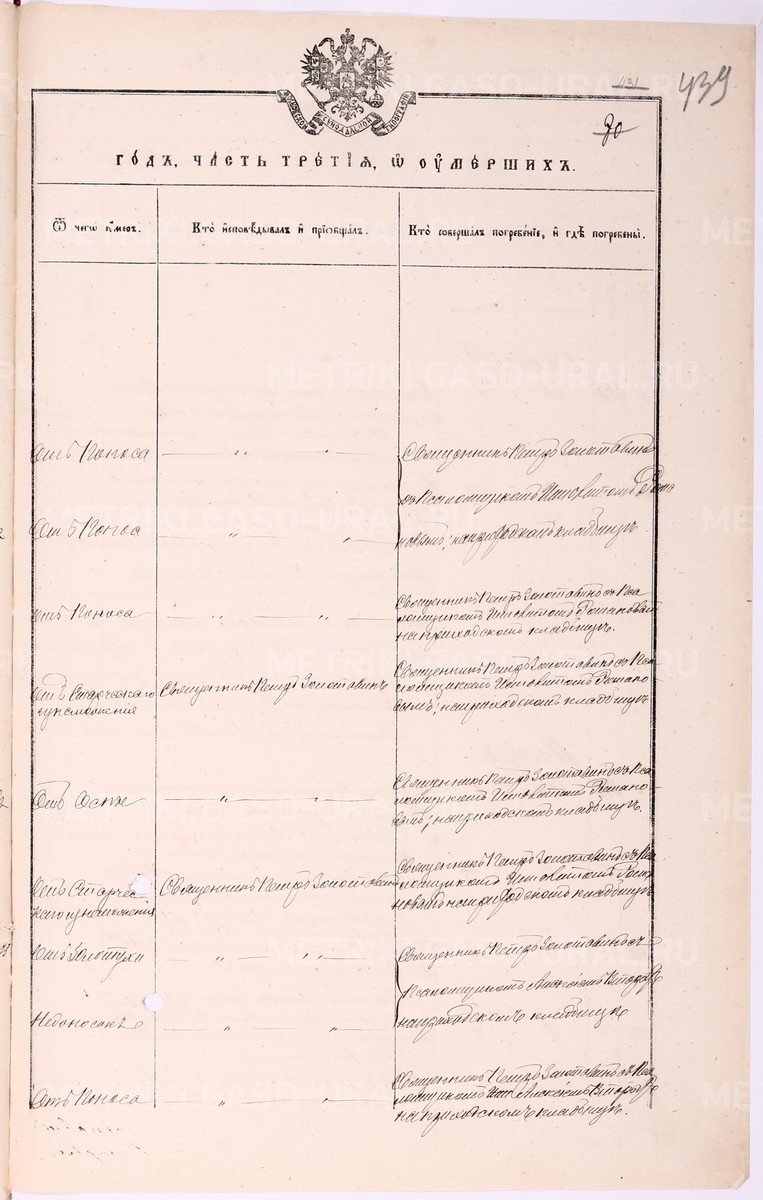 431
439
30
МОСКОВСКОЙ СѴНОДАЛЬНОЙ ТИПОГРАФІИ
ГО́ДЪ, ЧА́СТЬ ТРЕ́ТІЯ, Ѿ ОУМЕ́РШИХЪ.
Ѿ чегѡ оумеръ.
Кто̀ и҆сповѣ́дывалъ и҆ прїѡбща́лъ.
Кто̀ соверша́лъ погребе́нїе, и҆ гдѣ̀ погребены̀.
Отъ Поноса
Священникъ Петръ Золотавинъ
съ Псаломщикомъ Рома
Отъ Поноса
новымъ; на приходскомъ кладбищѣ
Отъ Поноса
Священникъ Петръ Золотавинъ съ Пса
ломщикомъ Романовымъ
на приходскомъ кладбищѣ.
Отъ Старческаго
изнеможения
Священникъ Петръ Золотавинъ
Священникъ Петръ Золотавинъ съ Пса
ломщикомъ Романо
вымъ; на приходскомъ кладбищѣ
Отъ Оспы
Священникъ Петръ Золотавинъ съ Пса
ломщикомъ Романо
вымъ; на приходскомъ кладбищѣ.
Отъ Старчес
каго изнеможения
Священникъ Петръ Золотавинъ
Священникъ Петръ Золотавинъ съ Пса
ломщикомъ Рома
новымъ на приходскомъ кладбищѣ
Отъ Золотухи
Священникъ Петръ Золотавинъ съ
Псаломщикомъ Алексѣемъ
Недоносокъ
на приходскомъ кладбищѣ
Отъ Поноса
Священникъ Петръ Золотавинъ съ Пса
ломщикомъ Алексѣемъ
на приходскомъ кладбищѣ.
METRIKI.GASO-URAL.RU